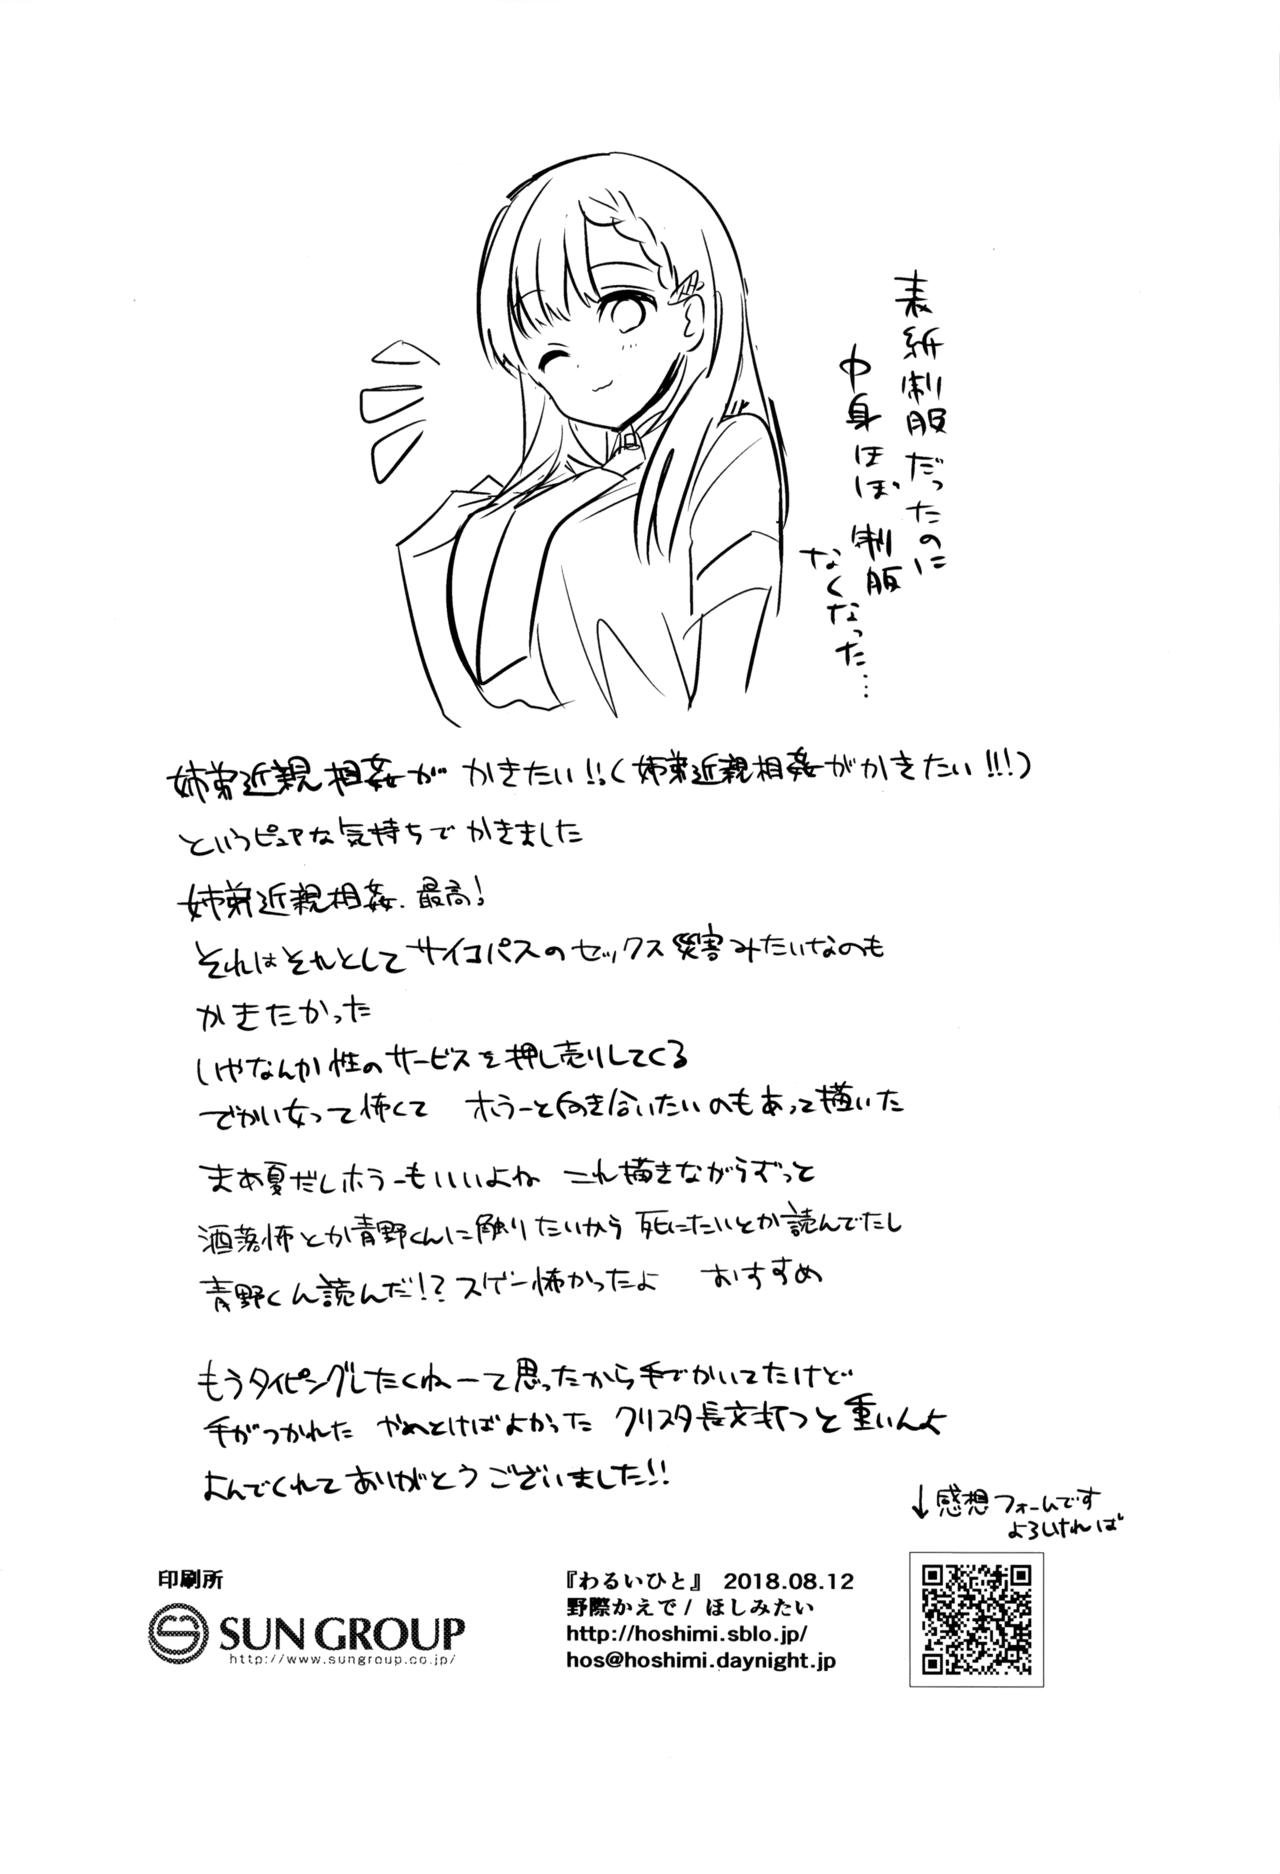 表紙制服だったのに
中身ほぼ制服
なくなった…
姉弟近親相姦がかきたい!!(姉弟近親相姦がかきたい!!!)
というピュアな気持ちでかきました
姉弟近親相姦、最高!
それはそれとしてサイコパスのセックス災害みたいなのも
かきたかった
いやなんか性のサービスを押し売りしてくる
でかい女って怖くて ホラーと向き合いたいのもあって描いた
まあ夏だしホラーもいいよね これ描きながらずっと
洒落怖とか青野くんに触りたいから死にたいとか読んでたし
青野くん読んだ!?スゲー怖かったよ おすすめ
もうタイピングしたくねーて思ったから手でかいてたけど
手がつかれた やめとけばよかった クリスタ長文打つと重いんよ
よんでくれてありがとうございました!!
↓感想フォームです
よろしければ
印刷所
SUN GROUP
http://www.sungroup.co.jp/
『わるいひと』 2018.08.12
野際かえで/ ほしみたい
http://hoshimi.sblo.jp/
hos@hoshimi.daynight.jp